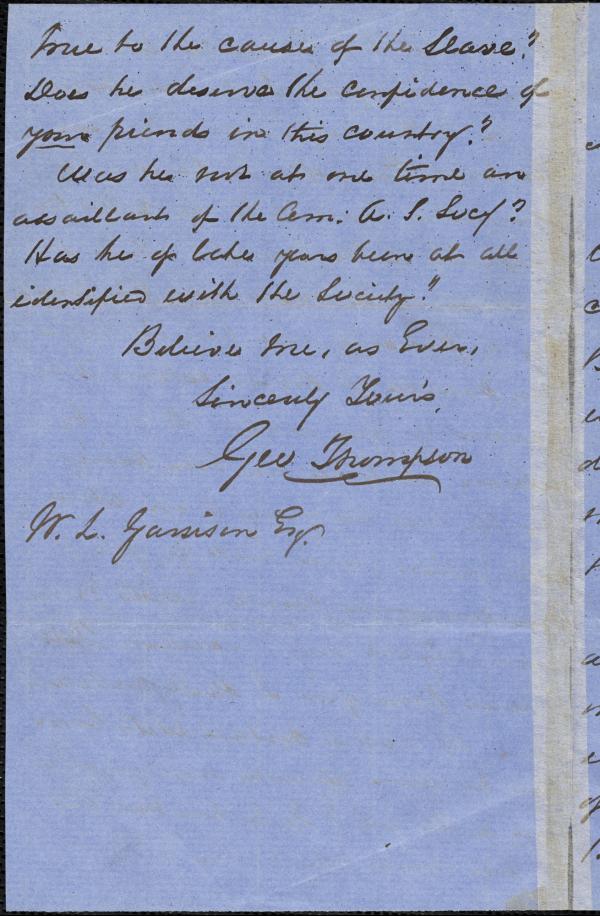 true to the cause of the Slave?
Does he deserve the confidence of
your friends in this country?
Was he not at one time an
assailant of the Am: A. S. Socy?
Has he of later years been at all
identified with the Society?
Believe me, as Ever,
Sincerely Yours,
Geo Thompson
W. L. Garrison Esq.